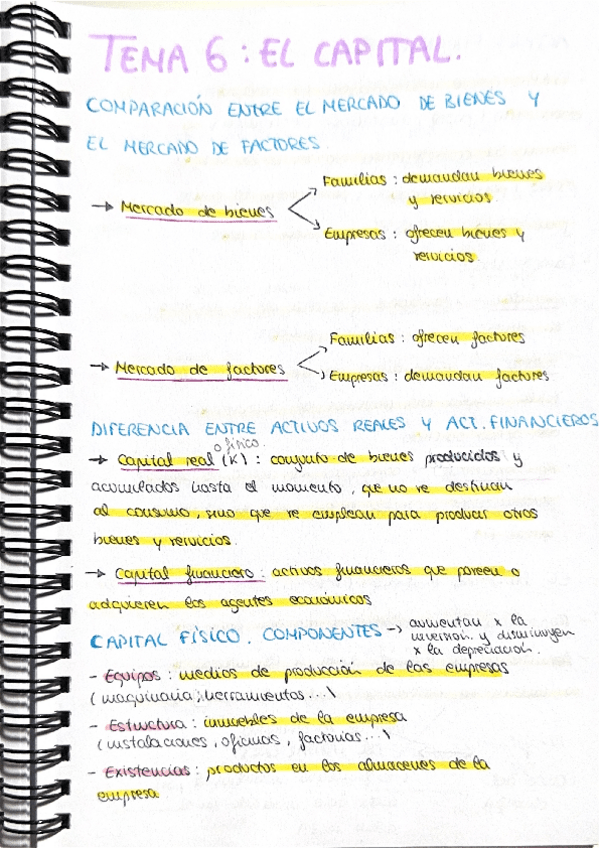 TEMA 6: EL CAPITAL.
COMPARACIÓN ENTRE EL MERCADO DE BIENES Y
EL MERCADO DE FACTORES.
→ Mercado de bienes
Familias: demandan bienes
y servicios.
Empresas: ofrecen bienes y
servicios.
→ Mercado de factores
Familias: ofrecen factores
Empresas: demandan factores
DIFERENCIA ENTRE ACTIVOS REALES Y ACT. FINANCIEROS
o físico.
→ Capital real (K): conjunto de bienes producidos y
acumulados hasta el momento, que no se destinan
al consumo, sino que se emplean para producir otros
bienes y servicios.
→ Capital financiero: activos financieros que poseen o
adquieren los agentes económicos
CAPITAL FÍSICO. COMPONENTES → aumentan x la
inversión. y disminuyen
x la depreciación.
- Equipos: medios de producción de las empresas
(maquinaria, herramientas...)
- Estructura: inmuebles de la empresa
(instalaciones, oficinas, factorías...)
- Existencias: productos en los almacenes de la
empresa.